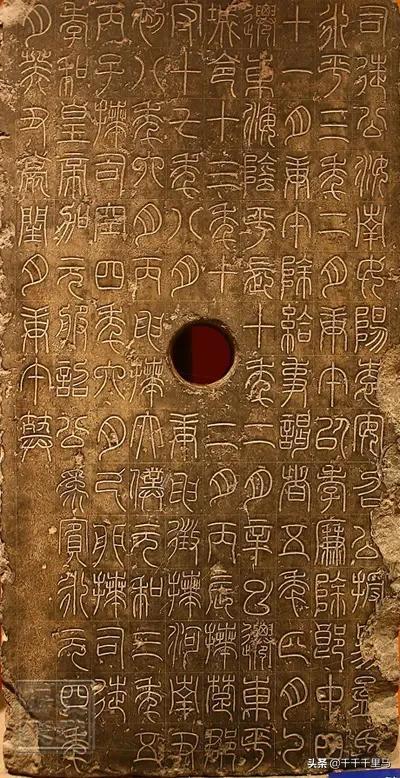 司徒公汝南女陽袁安召公授易孟氏
永平三年二月庚午以孝廉除郎中四
十一月庚午除給事謁者五年正月乙
遷東海陰平長十年二月辛巳遷東平
城令十三年十二月丙辰拜楚郡
守十七年八月庚申徵拜河南尹
初八年六月丙申拜太僕元和三年五
丙子拜司空四年六月己卯拜司徒
孝和皇帝加元服詔公為賓永元四年
月癸丑薨閏月庚午葬
头条 @千千千里马